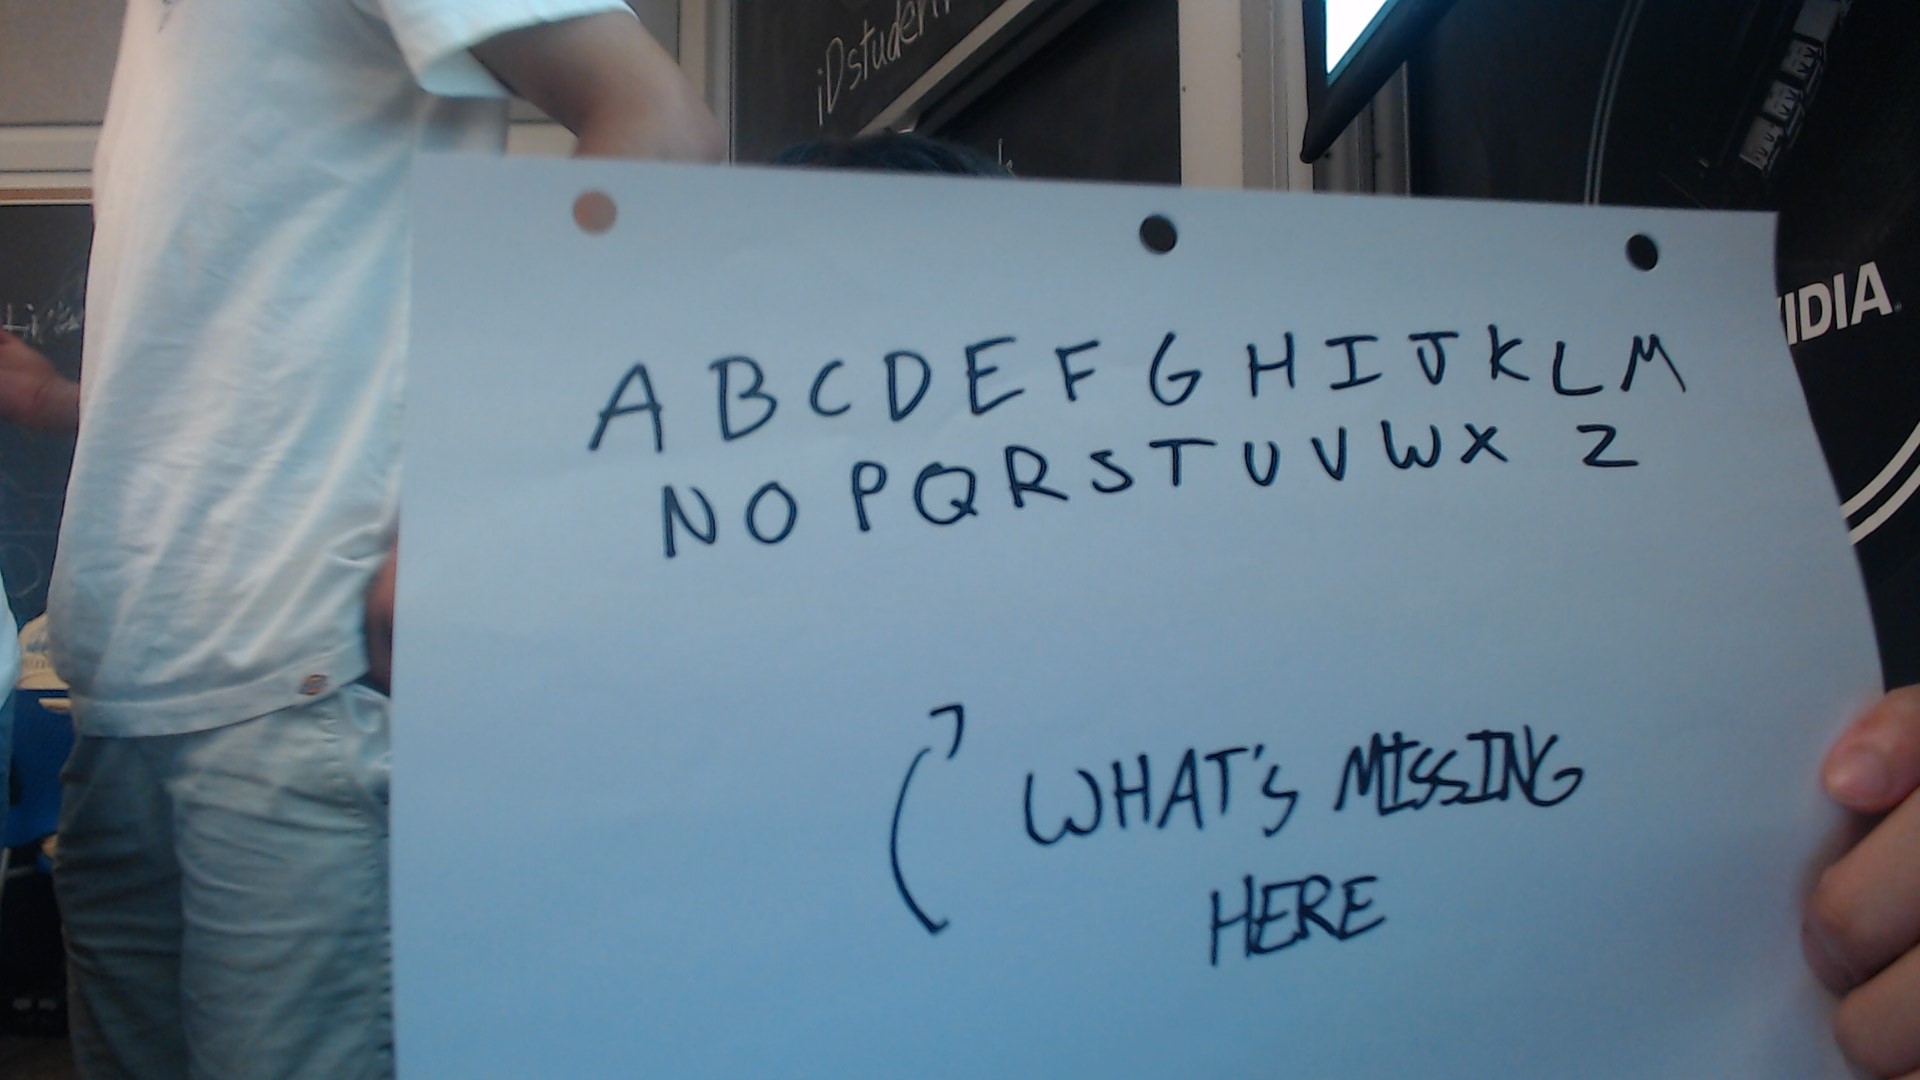 iDstuden
IDIA
A B C D E F G H I J K L M
N O P Q R S T U V W X Z
WHAT'S MISSING
HERE